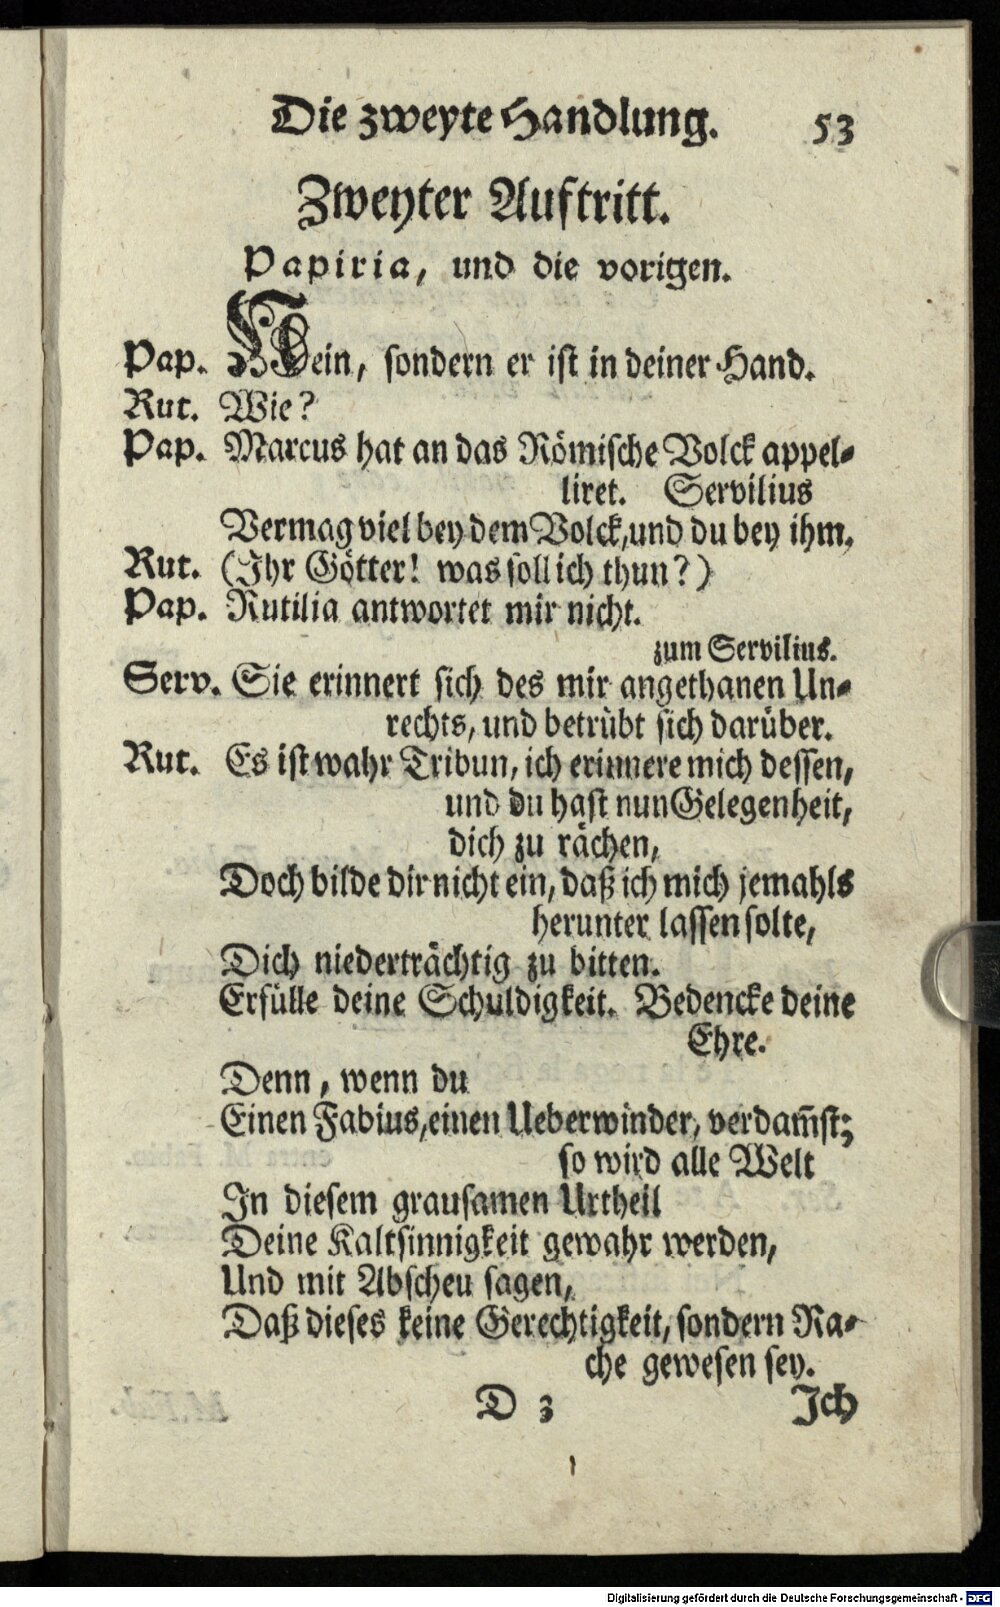 Die zweyte Handlung. 53
Zweyter Auftritt.
Papiria, und die vorigen.
Pap. Nein, sondern er ist in deiner Hand.
Rut. Wie?
Pap. Marcus hat an das Römische Volck appel-
liret. Servilius
Vermag viel bey dem Volck, und du bey ihm.
Rut. (Ihr Götter! was soll ich thun?)
Pap. Rutilia antwortet mir nicht.
zum Servilius.
Serv. Sie erinnert sich des mir angethanen Un-
rechts, und betrübt sich darüber.
Rut. Es ist wahr Tribun, ich erinnere mich dessen,
und du hast nun Gelegenheit,
dich zu rächen,
Doch bilde dir nicht ein, daß ich mich jemahls
herunter lassen solte,
Dich niederträchtig zu bitten.
Erfülle deine Schuldigkeit. Bedencke deine
Ehre.
Denn, wenn du
Einen Fabius, einen Ueberwinder, verdam̄st;
so wird alle Welt
In diesem grausamen Urtheil
Deine Kaltsinnigkeit gewahr werden,
Und mit Abscheu sagen,
Daß dieses keine Gerechtigkeit, sondern Ra-
che gewesen sey.
D 3 Ich
Digitalisierung gefördert durch die Deutsche Forschungsgemeinschaft - DFG